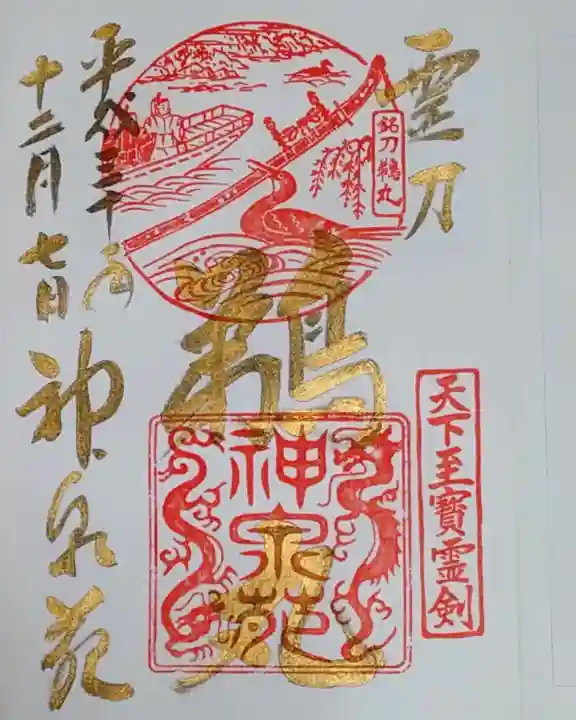 霊刀
銘刀鵜丸
天下至寳霊剣
鵜丸
神泉苑
平成三十年
十二月七日神泉苑